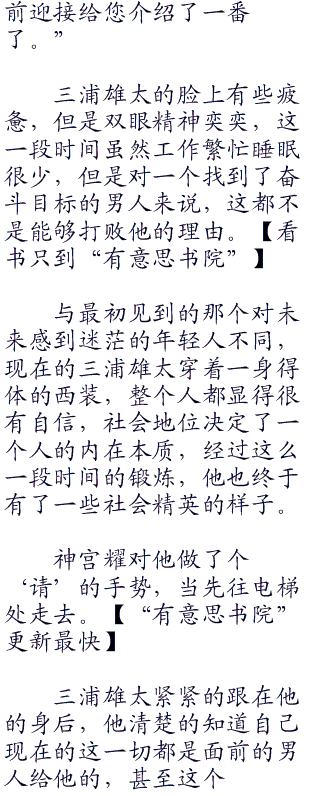 前迎接给您介绍了一番
了。”
三浦雄太的脸上有些疲
惫，但是双眼精神奕奕，这
一段时间虽然工作繁忙睡眠
很少，但是对一个找到了奋
斗目标的男人来说，这都不
是能够打败他的理由。【看
书只到“有意思书院”】
与最初见到的那个对未
来感到迷茫的年轻人不同，
现在的三浦雄太穿着一身得
体的西装，整个人都显得很
有自信，社会地位决定了一
个人的内在本质，经过这么
一段时间的锻炼，他也终于
有了一些社会精英的样子。
神宫耀对他做了个
‘请’的手势，当先往电梯
处走去。【“有意思书院”
更新最快】
三浦雄太紧紧的跟在他
的身后，他清楚的知道自己
现在的这一切都是面前的男
人给他的，甚至这个